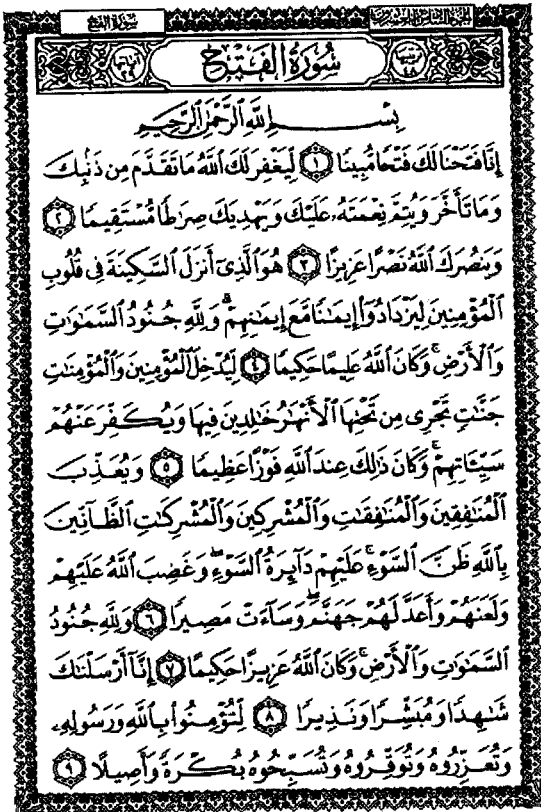 سورة الفتح
الجزء السادس والعشرون
سُورَةُ الفَتْحِ
بِسْمِ اللَّهِ الرَّحْمَٰنِ الرَّحِيمِ
إِنَّا فَتَحْنَا لَكَ فَتْحًا مُّبِينًا ١ لِّيَغْفِرَ لَكَ اللَّهُ مَا تَقَدَّمَ مِن ذَنۢبِكَ
وَمَا تَأَخَّرَ وَيُتِمَّ نِعْمَتَهُۥ عَلَيْكَ وَيَهْدِيَكَ صِرَٰطًا مُّسْتَقِيمًا ٢
وَيَنصُرَكَ اللَّهُ نَصْرًا عَزِيزًا ٣ هُوَ ٱلَّذِىٓ أَنزَلَ ٱلسَّكِينَةَ فِى قُلُوبِ
ٱلْمُؤْمِنِينَ لِيَزْدَادُوٓا۟ إِيمَٰنًا مَّعَ إِيمَٰنِهِمْ ۗ وَلِلَّهِ جُنُودُ ٱلسَّمَٰوَٰتِ
وَٱلْأَرْضِ ۚ وَكَانَ ٱللَّهُ عَلِيمًا حَكِيمًا ٤ لِّيُدْخِلَ ٱلْمُؤْمِنِينَ وَٱلْمُؤْمِنَٰتِ
جَنَّٰتٍ تَجْرِى مِن تَحْتِهَا ٱلْأَنْهَٰرُ خَٰلِدِينَ فِيهَا وَيُكَفِّرَ عَنْهُمْ
سَيِّـَٔاتِهِمْ ۚ وَكَانَ ذَٰلِكَ عِندَ ٱللَّهِ فَوْزًا عَظِيمًا ٥ وَيُعَذِّبَ
ٱلْمُنَٰفِقِينَ وَٱلْمُنَٰفِقَٰتِ وَٱلْمُشْرِكِينَ وَٱلْمُشْرِكَٰتِ ٱلظَّآنِّينَ
بِٱللَّهِ ظَنَّ ٱلسَّوْءِ ۚ عَلَيْهِمْ دَآئِرَةُ ٱلسَّوْءِ ۖ وَغَضِبَ ٱللَّهُ عَلَيْهِمْ
وَلَعَنَهُمْ وَأَعَدَّ لَهُمْ جَهَنَّمَ ۖ وَسَآءَتْ مَصِيرًا ٦ وَلِلَّهِ جُنُودُ
ٱلسَّمَٰوَٰتِ وَٱلْأَرْضِ ۚ وَكَانَ ٱللَّهُ عَزِيزًا حَكِيمًا ٧ إِنَّآ أَرْسَلْنَٰكَ
شَٰهِدًا وَمُبَشِّرًا وَنَذِيرًا ٨ لِّتُؤْمِنُوا۟ بِٱللَّهِ وَرَسُولِهِۦ
وَتُعَزِّرُوهُ وَتُوَقِّرُوهُ وَتُسَبِّحُوهُ بُكْرَةً وَأَصِيلًا ٩